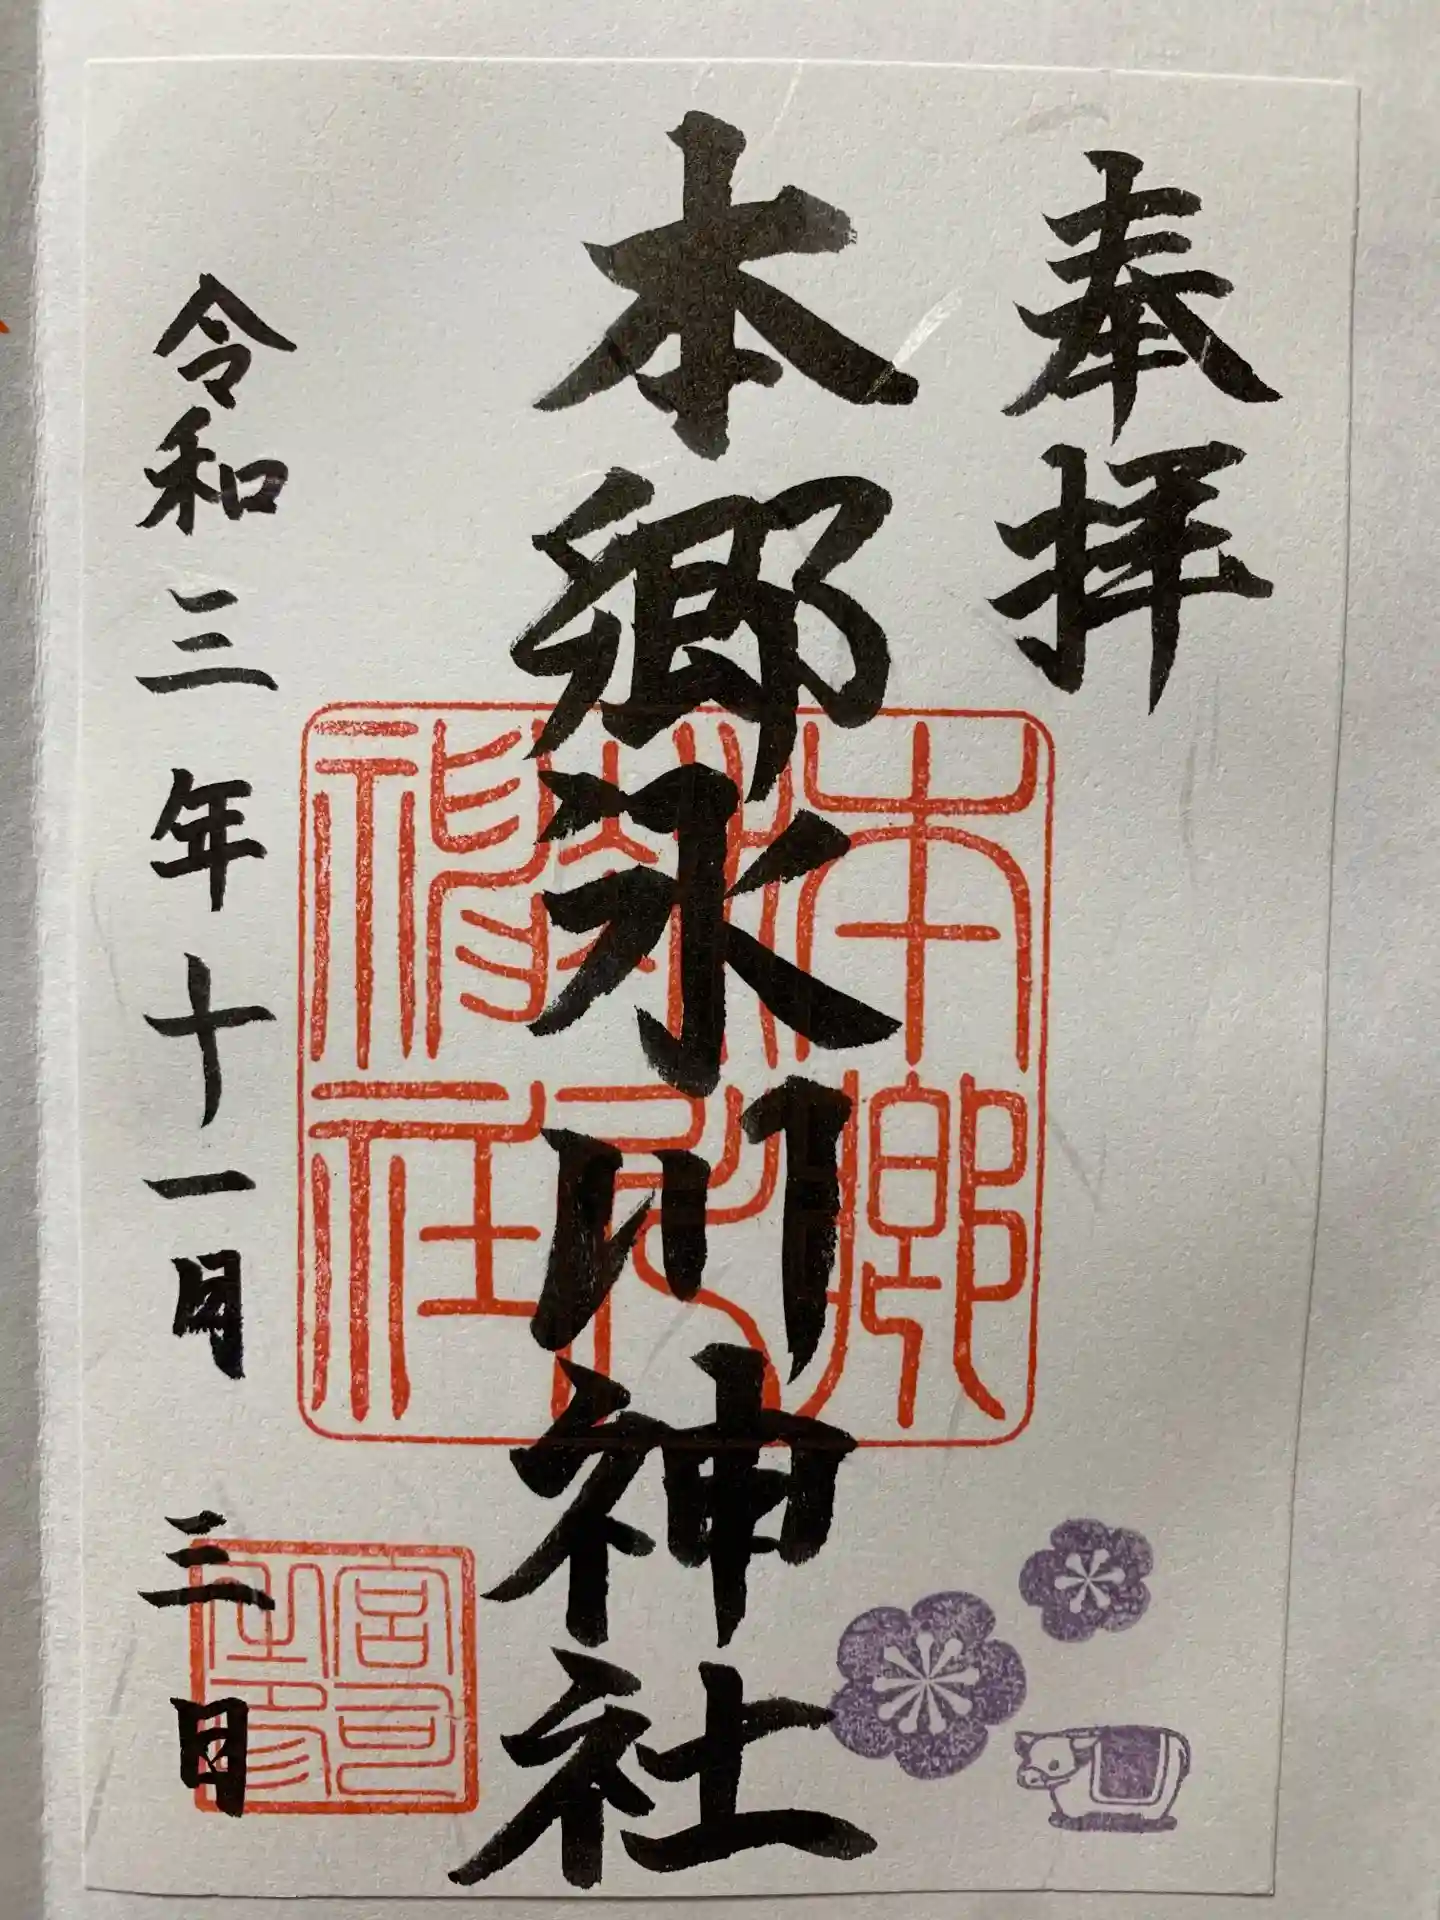 奉拝
本郷氷川神社
本郷氷川神社
令和三年十一月三日
宮司之印